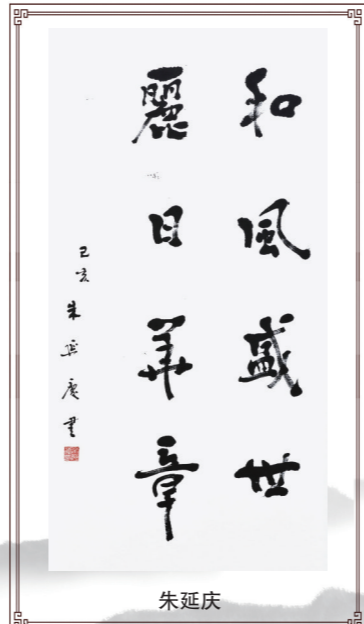 和風盛世
麗日華章
己亥朱延庆書
朱延庆